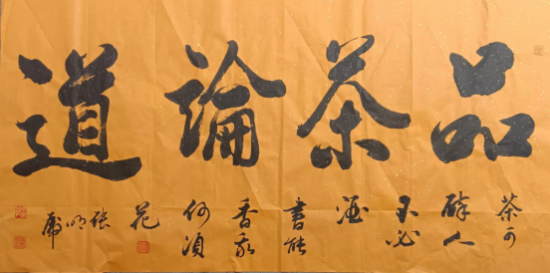 品茶論道
茶可
醉人
不必
酒
書能
香我
何須
花
張明